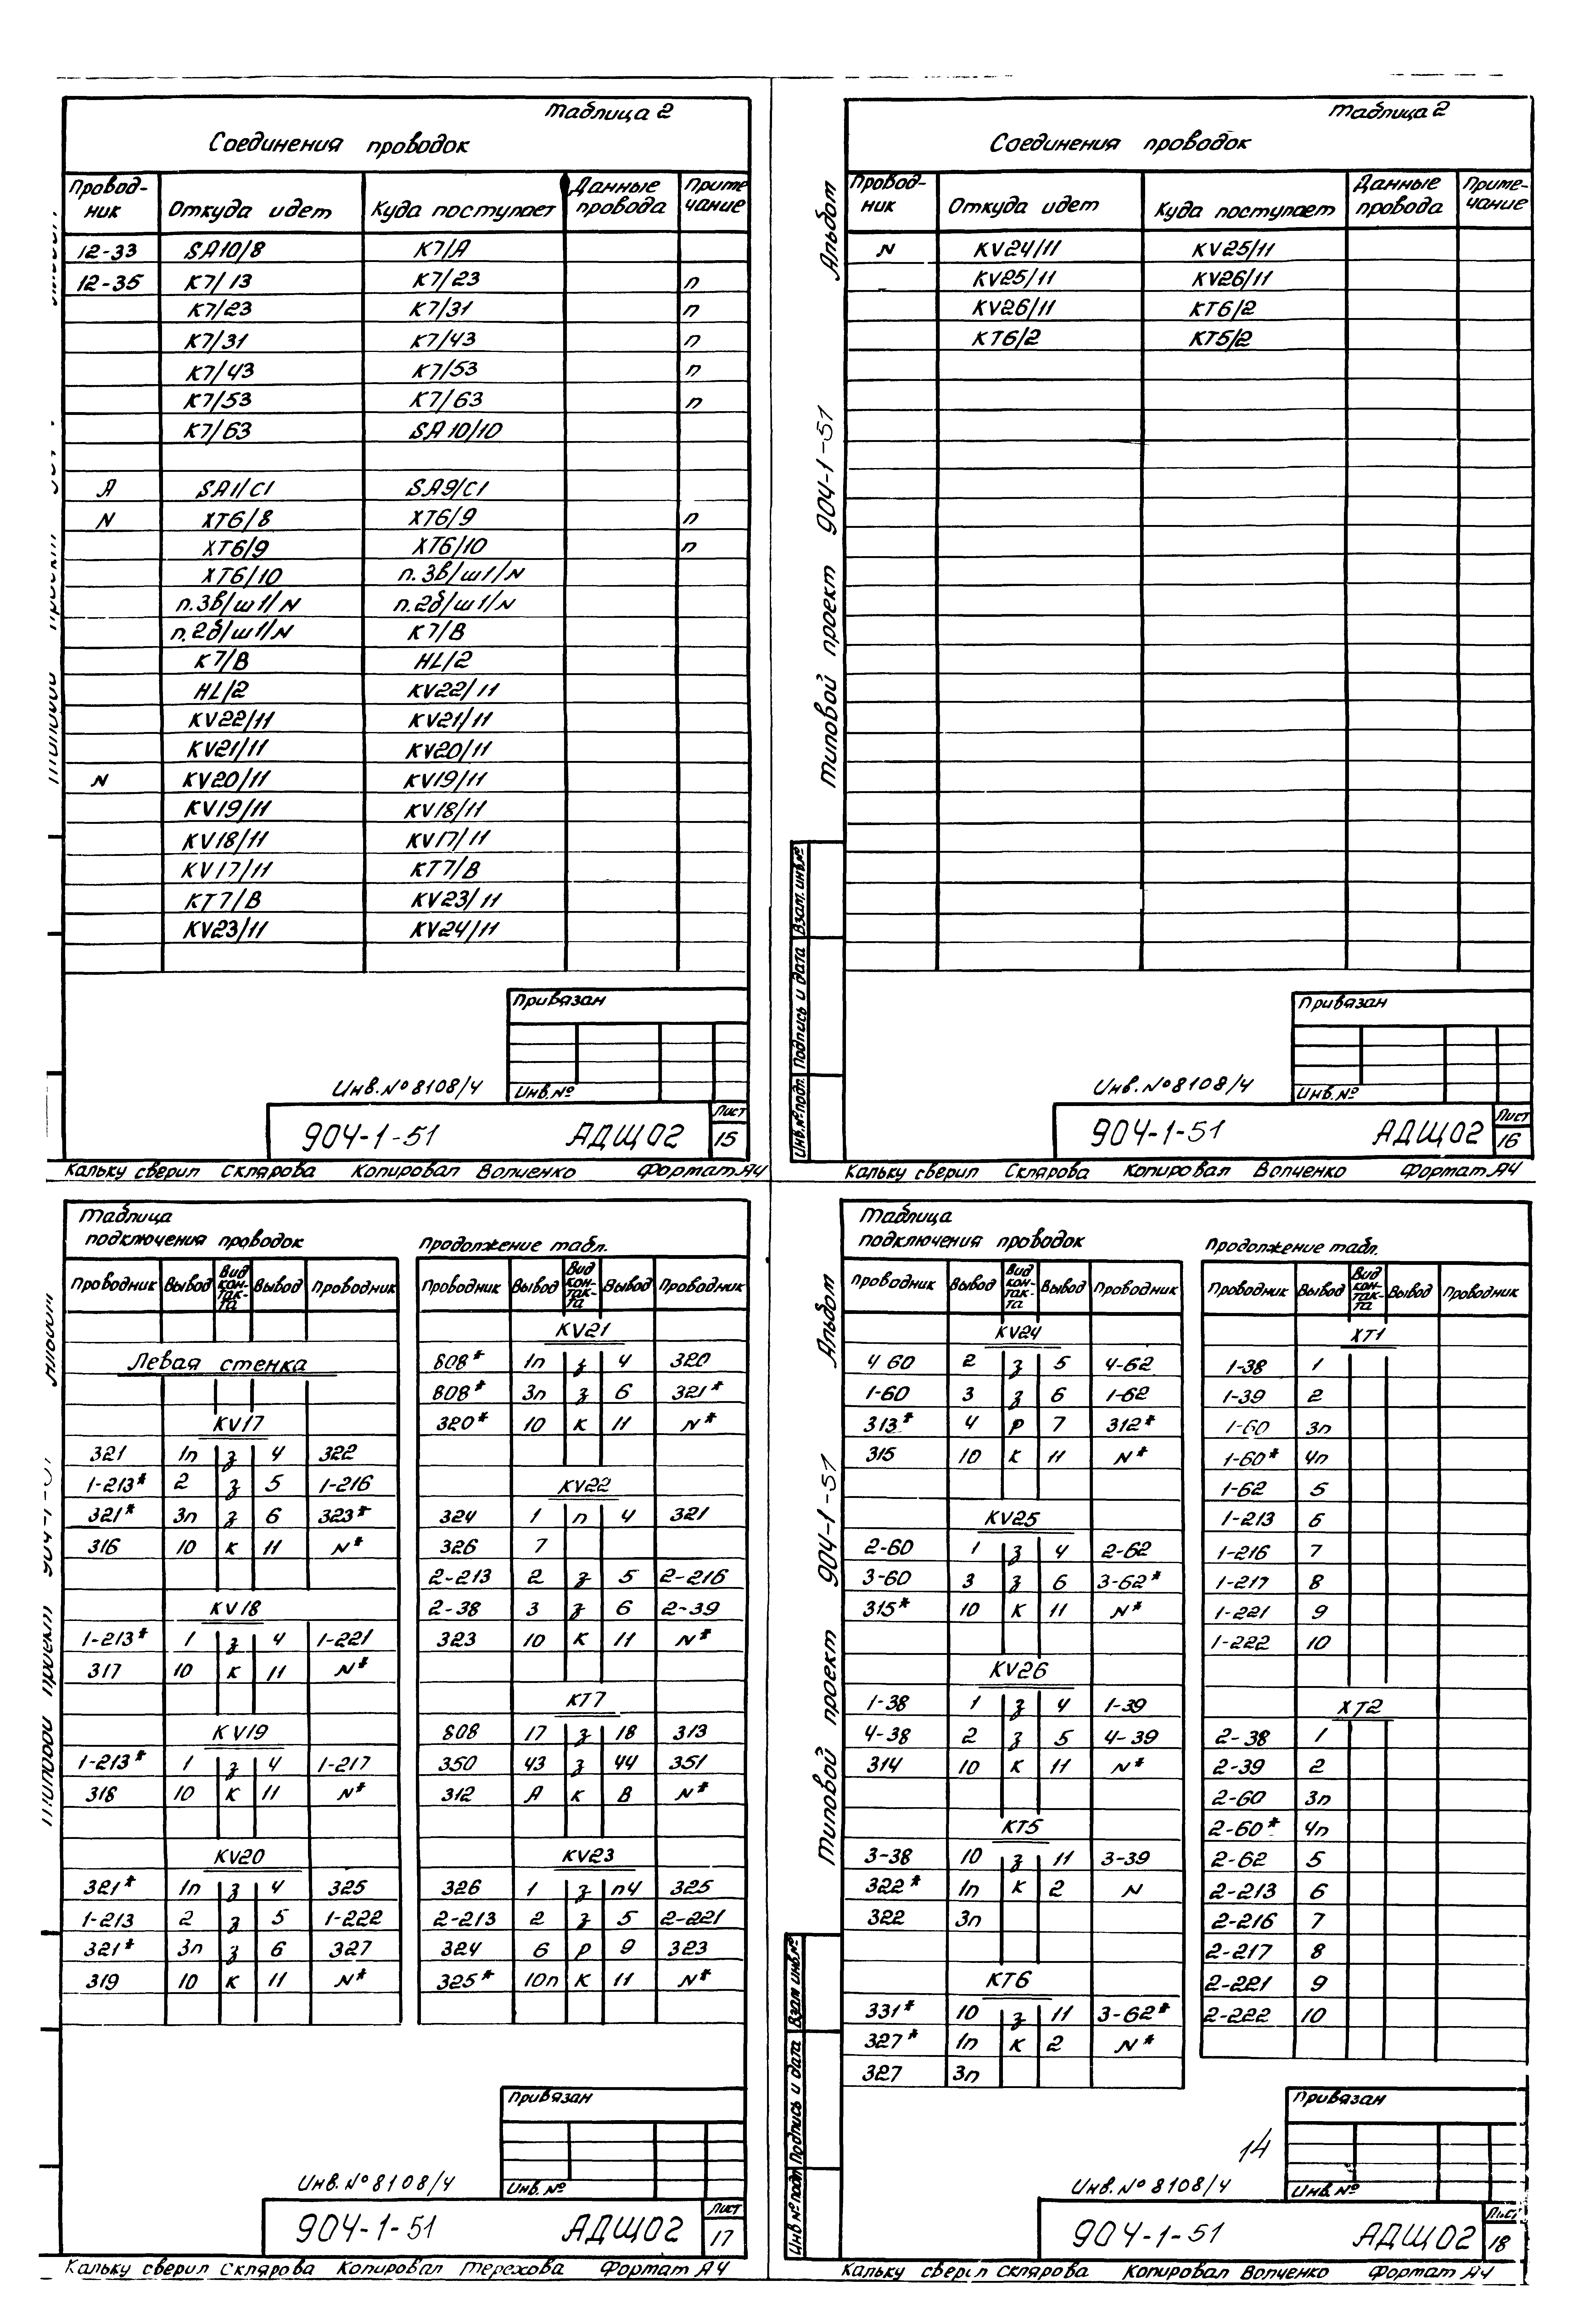 Таблица 2
Соединения проводок
Провод-ник Откуда идет Куда поступает Данные провода Приме чание
12-33 SA10/8 K7/A
12-35 K7/13 K7/23 п
K7/23 K7/31 п
K7/31 K7/43 п
K7/43 K7/53 п
K7/53 K7/63 п
K7/63 SA10/10
A SA1/C1 SA9/C1
N XT6/8 XT6/9 п
XT6/9 XT6/10 п
XT6/10 п.3в/ш1/N
п.3в/ш1/N п.2б/ш1/N
п.2б/ш1/N K7/B
K7/B HL/2
HL/2 KV22/11
KV22/11 KV21/11
KV21/11 KV20/11
N KV20/11 KV19/11
KV19/11 KV18/11
KV18/11 KV17/11
KV17/11 KT7/B
KT7/B KV23/11
KV23/11 KV24/11
Привязан
Инв.№
Инв.№8108/4
904-1-51 АДЩ02
Лист
15
Кальку сверил Склярова Копировал Вопченко Формат А4
Таблица 2
Соединения проводок
Провод-ник Откуда идет Куда поступает Данные провода Приме-чание
N KV24/11 KV25/11
KV25/11 KV26/11
KV26/11 KT6/2
KT6/2 KT5/2
Типовой проект 904-1-51 Альбом
Инв.№подл. Подпись и дата Взам. инв.№
Привязан
Инв.№
Инв.№8108/4
904-1-51 АДЩ02
Лист
16
Кальку сверил Склярова Копировал Вопченко Формат А4
Таблица
подключения проводок
Проводник Вывод Вид кон-так-та Вывод Проводник
Левая стенка
KV17
321 1п з 4 322
1-213* 2 з 5 1-216
321* 3п з 6 323*
316 10 к 11 N*
KV18
1-213* 1 з 4 1-221
317 10 к 11 N*
KV19
1-213* 1 з 4 1-217
318 10 к 11 N*
KV20
321* 1п з 4 325
1-213 2 з 5 1-222
321* 3п з 6 327
319 10 к 11 N*
Продолжение табл.
Проводник Вывод Вид кон-так-та Вывод Проводник
KV21
808* 1п з 4 320
808* 3п з 6 321*
320* 10 к 11 N*
KV22
324 1 п 4 321
326 7
2-213 2 з 5 2-216
2-38 3 з 6 2-39
323 10 к 11 N*
KT7
808 17 з 18 313
350 43 з 44 351
312 A к B N*
KV23
326 1 з п4 325
2-213 2 з 5 2-221
324 6 р 9 323
325* 10п к 11 N*
Привязан
Инв.№
Инв.№8108/4
904-1-51 АДЩ02
Лист
17
Кальку сверил Склярова Копировал Терехова Формат А4
Таблица
подключения проводок
Проводник Вывод Вид кон-так-та Вывод Проводник
KV24
4 60 2 з 5 4-62
1-60 3 з 6 1-62
313* 4 р 7 312*
315 10 к 11 N*
KV25
2-60 1 з 4 2-62
3-60 3 з 6 3-62*
315* 10 к 11 N*
KV26
1-38 1 з 4 1-39
4-38 2 з 5 4-39
314 10 к 11 N*
KT5
3-38 10 з 11 3-39
322* 1п к 2 N
322 3п
KT6
331* 10 з 11 3-62*
327* 1п к 2 N*
327 3п
Продолжение табл.
Проводник Вывод Вид кон-так-та Вывод Проводник
XT1
1-38 1
1-39 2
1-60 3п
1-60* 4п
1-62 5
1-213 6
1-216 7
1-217 8
1-221 9
1-222 10
XT2
2-38 1
2-39 2
2-60 3п
2-60* 4п
2-62 5
2-213 6
2-216 7
2-217 8
2-221 9
2-222 10
Типовой проект 904-1-51 Альбом
Инв№подл Подпись и дата Взам инв.№
Привязан
14
Инв.№
Инв.№8108/4
904-1-51 АДЩ02
Лист
18
Кальку сверил Склярова Копировал Вопченко Формат А4